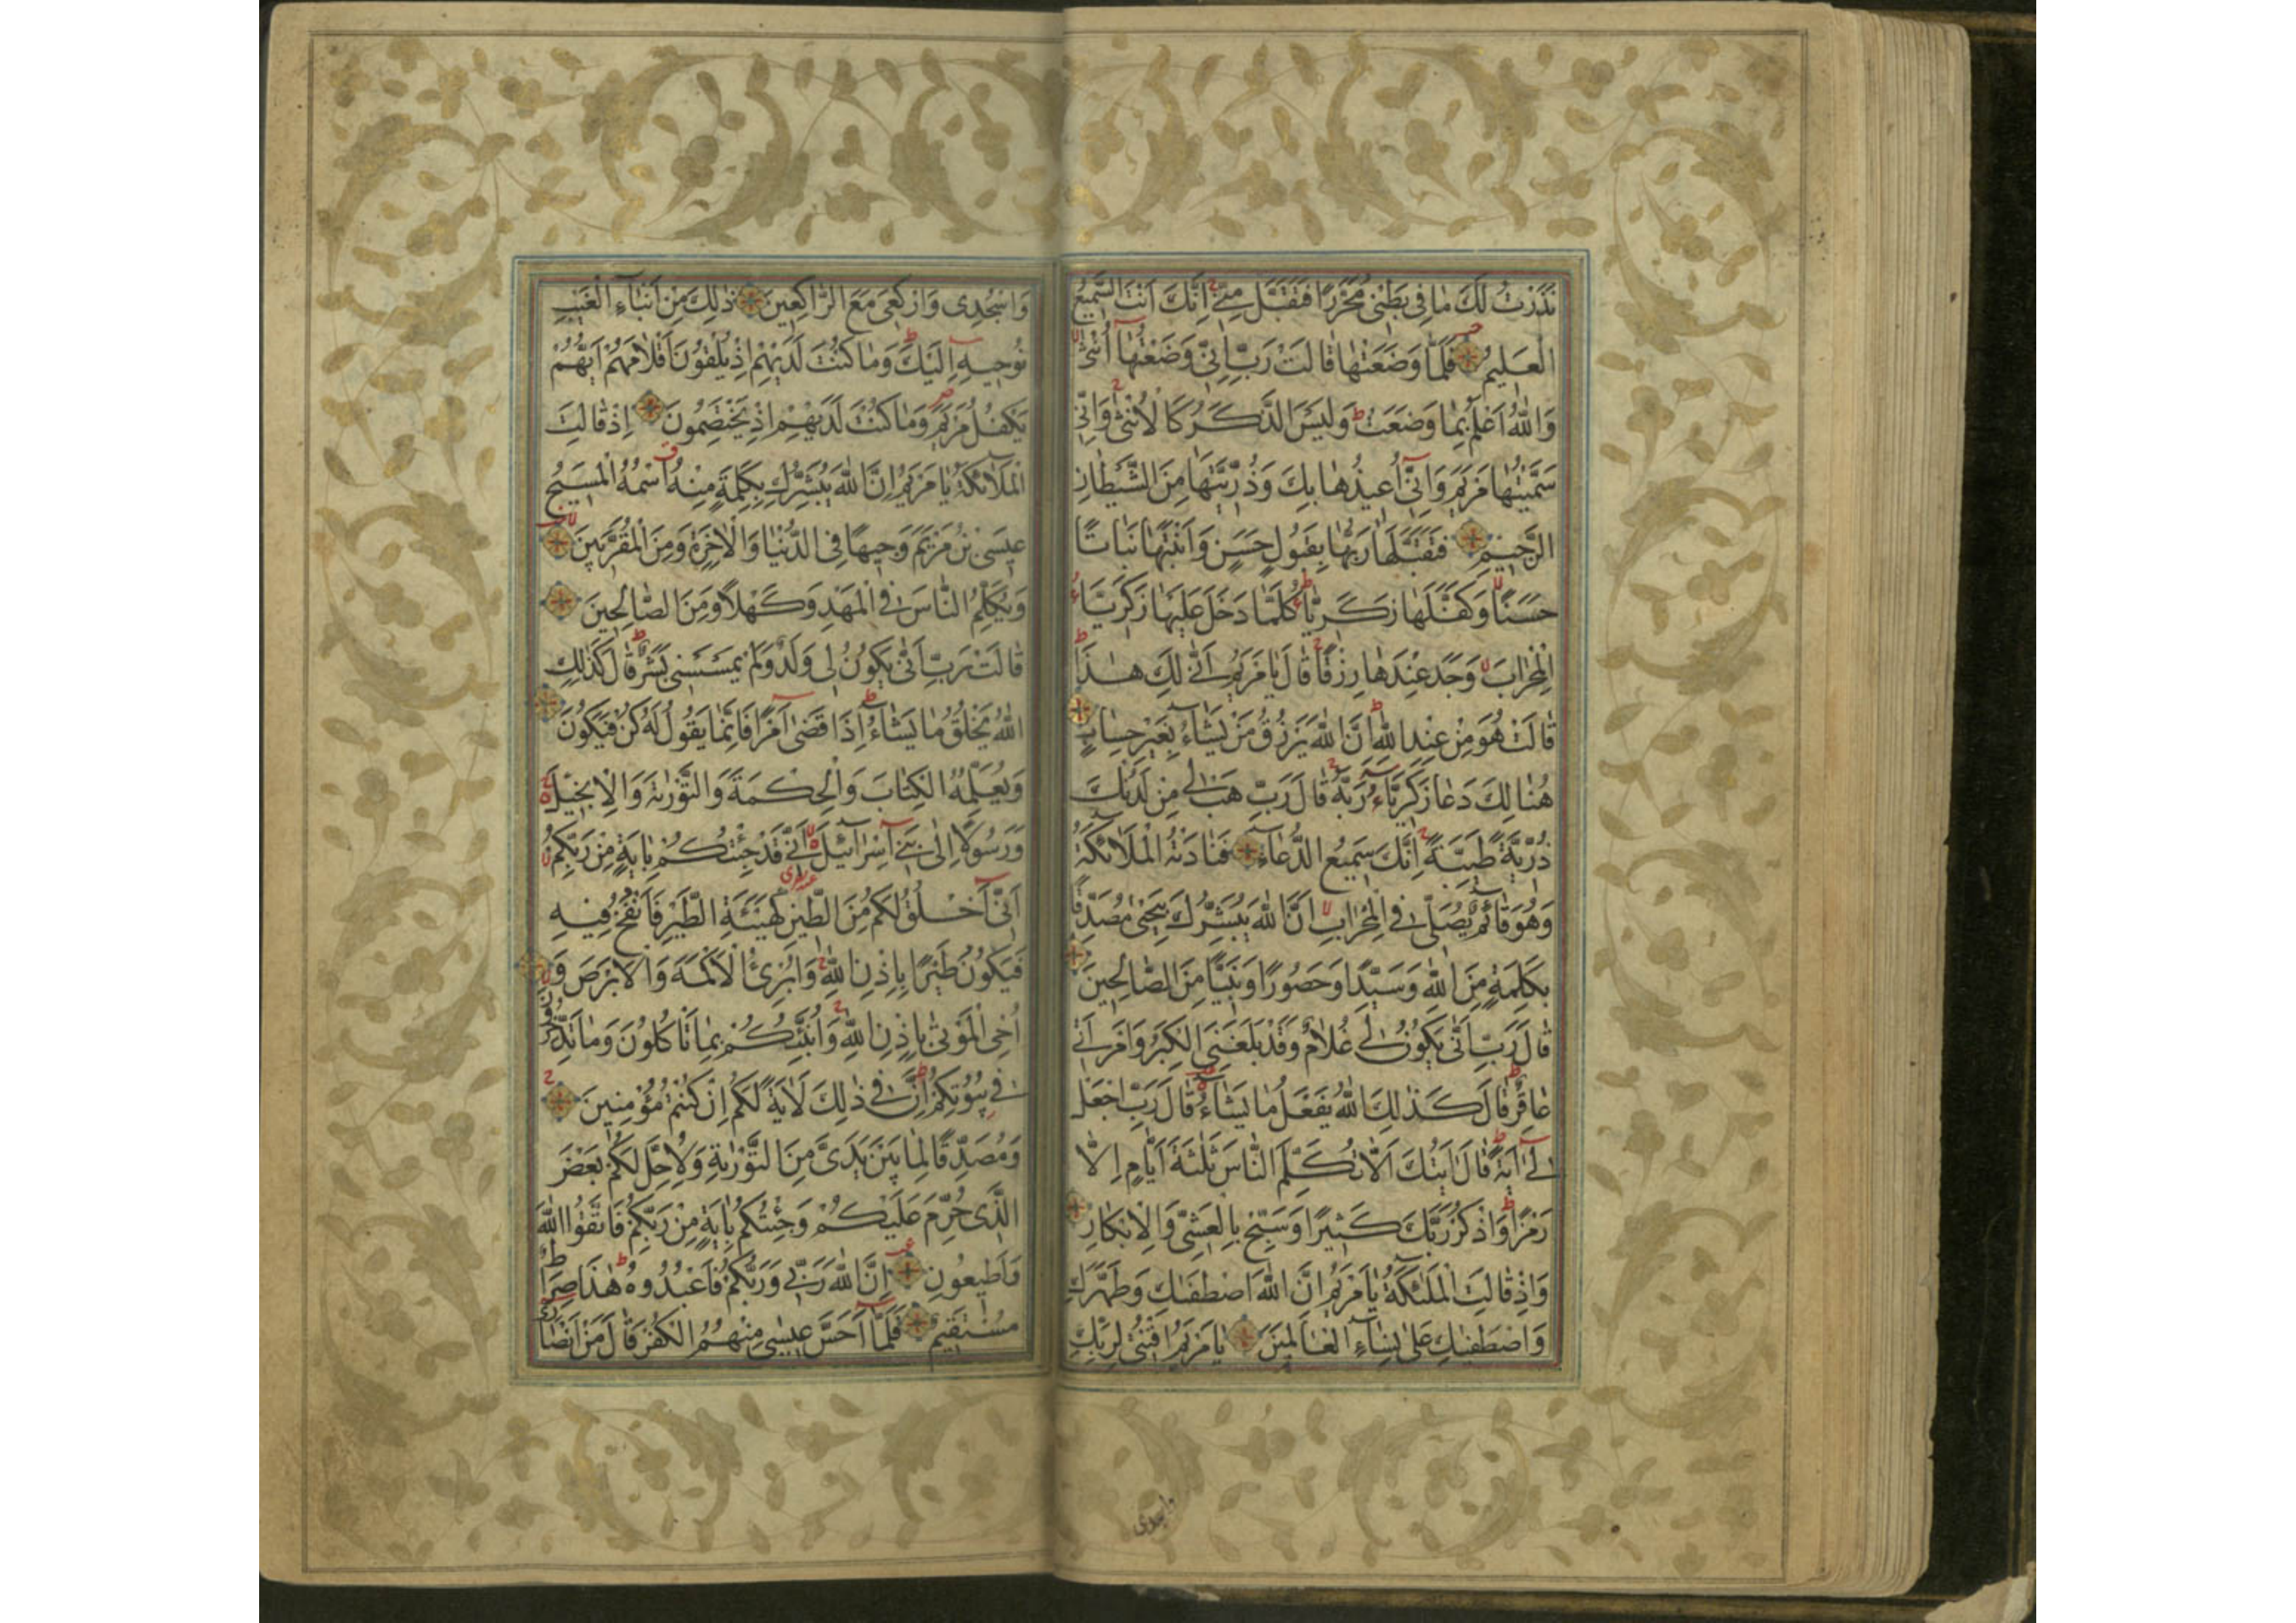 نَذَرْتُ لَكَ مَا فِي بَطْنِي مُحَرَّرًا فَتَقَبَّلْ مِنِّي إِنَّكَ أَنْتَ السَّمِيعُ
الْعَلِيمُ فَلَمَّا وَضَعَتْهَا قَالَتْ رَبِّ إِنِّي وَضَعْتُهَا أُنْثَى
وَاللَّهُ أَعْلَمُ بِمَا وَضَعَتْ وَلَيْسَ الذَّكَرُ كَالْأُنْثَى وَإِنِّي
سَمَّيْتُهَا مَرْيَمَ وَإِنِّي أُعِيذُهَا بِكَ وَذُرِّيَّتَهَا مِنَ الشَّيْطَانِ
الرَّجِيمِ فَتَقَبَّلَهَا رَبُّهَا بِقَبُولٍ حَسَنٍ وَأَنْبَتَهَا نَبَاتًا
حَسَنًا وَكَفَّلَهَا زَكَرِيَّا كُلَّمَا دَخَلَ عَلَيْهَا زَكَرِيَّاءُ
الْمِحْرَابَ وَجَدَ عِنْدَهَا رِزْقًا قَالَ يَا مَرْيَمُ أَنَّى لَكِ هَذَا
قَالَتْ هُوَ مِنْ عِنْدِ اللَّهِ إِنَّ اللَّهَ يَرْزُقُ مَنْ يَشَاءُ بِغَيْرِ حِسَابٍ
هُنَالِكَ دَعَا زَكَرِيَّاءُ رَبَّهُ قَالَ رَبِّ هَبْ لِي مِنْ لَدُنْكَ
ذُرِّيَّةً طَيِّبَةً إِنَّكَ سَمِيعُ الدُّعَاءِ فَنَادَتْهُ الْمَلَائِكَةُ
وَهُوَ قَائِمٌ يُصَلِّي فِي الْمِحْرَابِ أَنَّ اللَّهَ يُبَشِّرُكَ بِيَحْيَى مُصَدِّقًا
بِكَلِمَةٍ مِنَ اللَّهِ وَسَيِّدًا وَحَصُورًا وَنَبِيًّا مِنَ الصَّالِحِينَ
قَالَ رَبِّ أَنَّى يَكُونُ لِي غُلَامٌ وَقَدْ بَلَغَنِيَ الْكِبَرُ وَامْرَأَتِي
عَاقِرٌ قَالَ كَذَلِكَ اللَّهُ يَفْعَلُ مَا يَشَاءُ قَالَ رَبِّ اجْعَلْ
لِي آيَةً قَالَ آيَتُكَ أَلَّا تُكَلِّمَ النَّاسَ ثَلَثَةَ أَيَّامٍ إِلَّا
رَمْزًا وَاذْكُرْ رَبَّكَ كَثِيرًا وَسَبِّحْ بِالْعَشِيِّ وَالْإِبْكَارِ
وَإِذْ قَالَتِ الْمَلَئِكَةُ يَا مَرْيَمُ إِنَّ اللَّهَ اصْطَفَيكِ وَطَهَّرَكِ
وَاصْطَفَيكِ عَلَى نِسَاءِ الْعَالَمِينَ يَا مَرْيَمُ اقْنُتِي لِرَبِّكِ
واسجدی
وَاسْجُدِي وَارْكَعِي مَعَ الرَّاكِعِينَ ذَلِكَ مِنْ أَنْبَاءِ الْغَيْبِ
نُوحِيهِ إِلَيْكَ وَمَا كُنْتَ لَدَيْهِمْ إِذْ يُلْقُونَ أَقْلَامَهُمْ أَيُّهُمْ
يَكْفُلُ مَرْيَمَ وَمَا كُنْتَ لَدَيْهِمْ إِذْ يَخْتَصِمُونَ إِذْ قَالَتِ
الْمَلَائِكَةُ يَا مَرْيَمُ إِنَّ اللَّهَ يُبَشِّرُكِ بِكَلِمَةٍ مِنْهُ اسْمُهُ الْمَسِيحُ
عِيسَى بْنُ مَرْيَمَ وَجِيهًا فِي الدُّنْيَا وَالْآخِرَةِ وَمِنَ الْمُقَرَّبِينَ
وَيُكَلِّمُ النَّاسَ فِي الْمَهْدِ وَكَهْلًا وَمِنَ الصَّالِحِينَ
قَالَتْ رَبِّ أَنَّى يَكُونُ لِي وَلَدٌ وَلَمْ يَمْسَسْنِي بَشَرٌ قَالَ كَذَلِكِ
اللَّهُ يَخْلُقُ مَا يَشَاءُ إِذَا قَضَى أَمْرًا فَإِنَّمَا يَقُولُ لَهُ كُنْ فَيَكُونُ
وَيُعَلِّمُهُ الْكِتَابَ وَالْحِكْمَةَ وَالتَّوْرَيةَ وَالْإِنْجِيلَ
وَرَسُولًا إِلَى بَنِي إِسْرَائِيلَ أَنِّي قَدْ جِئْتُكُمْ بِآيَةٍ مِنْ رَبِّكُمْ
أَنِّي أَخْلُقُ لَكُمْ مِنَ الطِّينِ كَهَيْئَةِ الطَّيْرِ فَأَنْفُخُ فِيهِ
فَيَكُونُ طَيْرًا بِإِذْنِ اللَّهِ وَأُبْرِئُ الْأَكْمَهَ وَالْأَبْرَصَ وَ
أُحْيِ الْمَوْتَى بِإِذْنِ اللَّهِ وَأُنَبِّئُكُمْ بِمَا تَأْكُلُونَ وَمَا تَدَّخِرُونَ
فِي بُيُوتِكُمْ إِنَّ فِي ذَلِكَ لَآيَةً لَكُمْ إِنْ كُنْتُمْ مُؤْمِنِينَ
وَمُصَدِّقًا لِمَا بَيْنَ يَدَيَّ مِنَ التَّوْرَيةِ وَلِأُحِلَّ لَكُمْ بَعْضَ
الَّذِي حُرِّمَ عَلَيْكُمْ وَجِئْتُكُمْ بِآيَةٍ مِنْ رَبِّكُمْ فَاتَّقُوا اللَّهَ
وَأَطِيعُونِ إِنَّ اللَّهَ رَبِّي وَرَبُّكُمْ فَاعْبُدُوهُ هَذَا صِرَاطٌ
مُسْتَقِيمٌ فَلَمَّا أَحَسَّ عِيسَى مِنْهُمُ الْكُفْرَ قَالَ مَنْ أَنْصَارِي